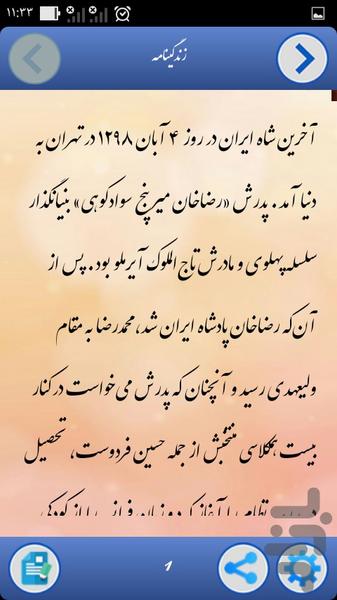 ۱۱:۳۳
زندگینامه
آخرین شاه ایران در روز ۴ آبان ۱۲۹۸ در تهران به
دنیا آمد. پدرش «رضاخان میرپنج سوادکوهی» بنیانگذار
سلسله پهلوی و مادرش تاج الملوک آیرملو بود. پس از
آن‌که رضاخان پادشاه ایران شد، محمدرضا به مقام
ولیعهدی رسید و آنچنان که پدرش می‌خواست در کنار
بیست همکلاسی منتخبش از جمله حسین فردوست، تحصیل
نظام را آغاز کرد و زبان فرانسه را از کودکی
۱